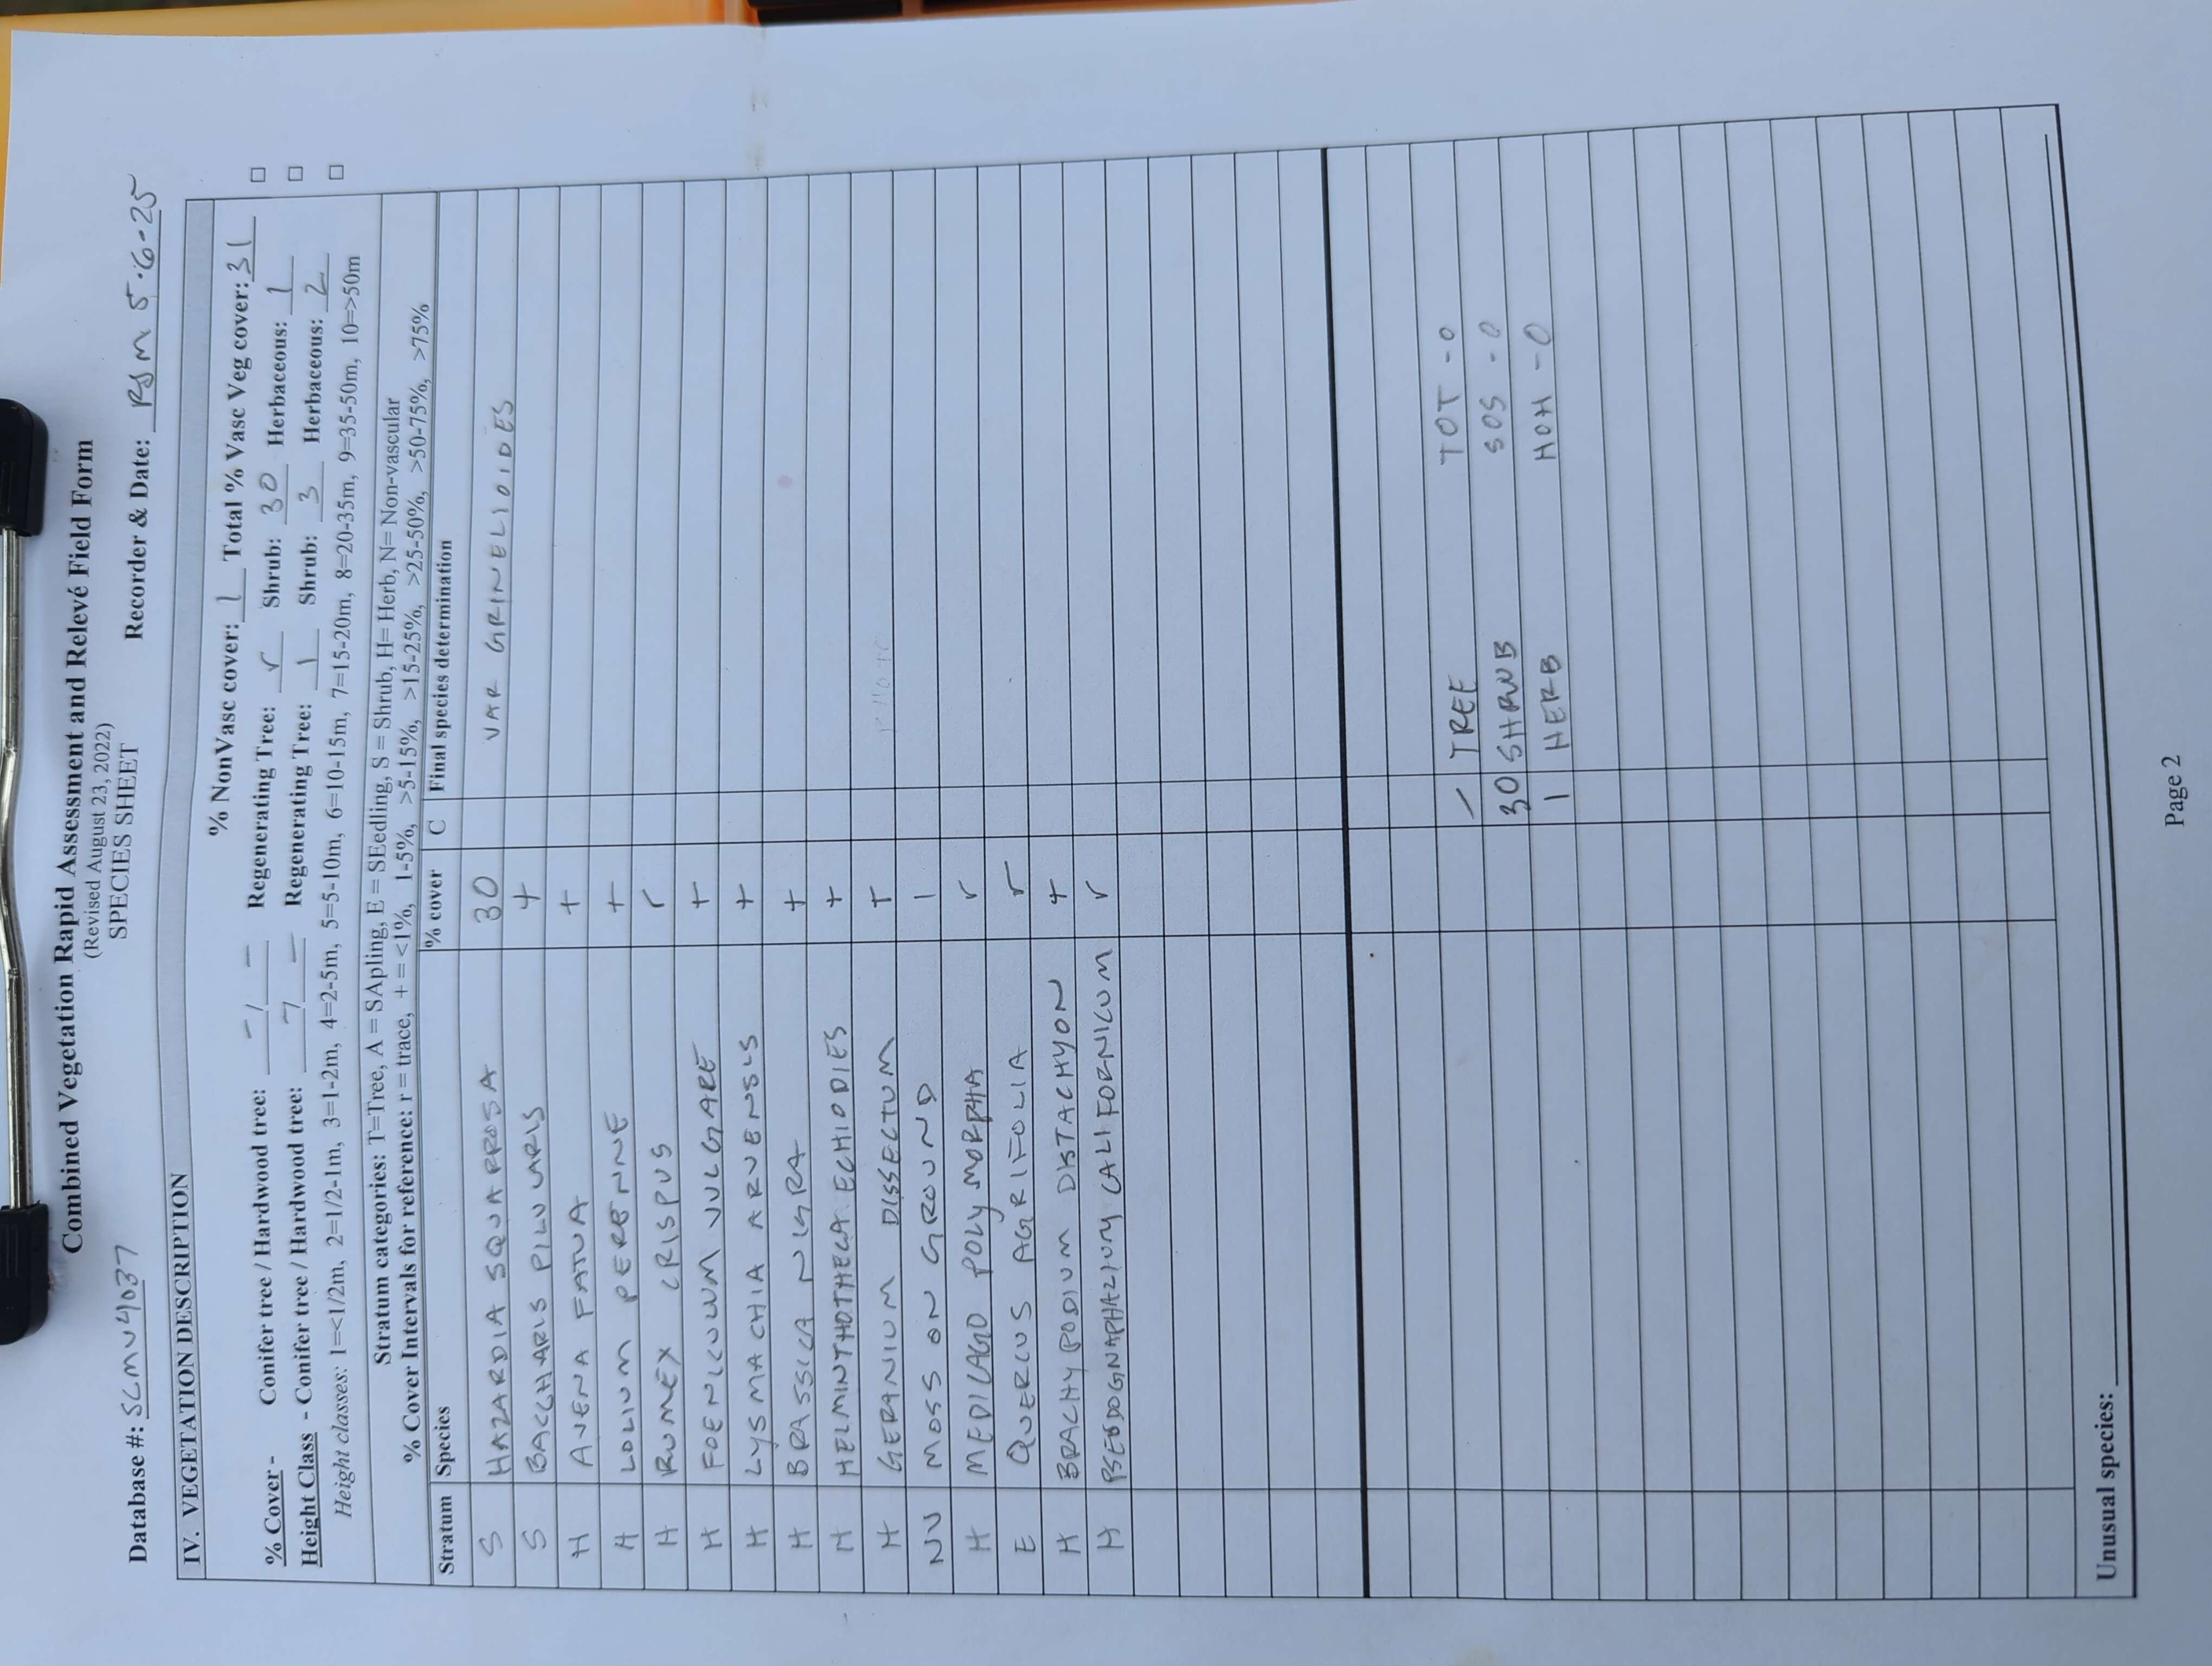 Combined Vegetation Rapid Assessment and Relevé Field Form
(Revised August 23, 2022)
SPECIES SHEET
Database #: SCMV4037 Recorder & Date: RJM 5·6-25
IV. VEGETATION DESCRIPTION
% NonVasc cover: 1 Total % Vasc Veg cover: 31
% Cover - Conifer tree / Hardwood tree: - / - Regenerating Tree: r Shrub: 30 Herbaceous: 1 □
Height Class - Conifer tree / Hardwood tree: - / - Regenerating Tree: 1 Shrub: 3 Herbaceous: 2 □
Height classes: 1=<1/2m, 2=1/2-1m, 3=1-2m, 4=2-5m, 5=5-10m, 6=10-15m, 7=15-20m, 8=20-35m, 9=35-50m, 10=>50m □
Stratum categories: T=Tree, A = SApling, E = SEedling, S = Shrub, H= Herb, N= Non-vascular
% Cover Intervals for reference: r = trace, + = <1%, 1-5%, >5-15%, >15-25%, >25-50%, >50-75%, >75%
Stratum Species % cover C Final species determination
S HAZARDIA SQUARROSA 30 VAR GRINELIOIDES
S BACCHARIS PILUARIS +
H AVENA FATUA +
H LOLIUM PERENNE +
H RUMEX CRISPUS r
H FOENICULUM VULGARE +
H LYSMACHIA ARVENSIS +
H BRASSICA NIGRA +
H HELMINTHOTHECA ECHIODIES +
H GERANIUM DISSECTUM +
NV MOSS ON GROUND 1
H MEDICAGO POLYMORPHA r
E QUERCUS AGRIFOLIA r
H BRACHYPODIUM DISTACHYON +
H PSEUDOGNAPHAZIUM CALIFORNICUM r
- TREE TOT - 0
30 SHRUB SOS - 0
1 HERB HOH - 0
Unusual species:
Page 2